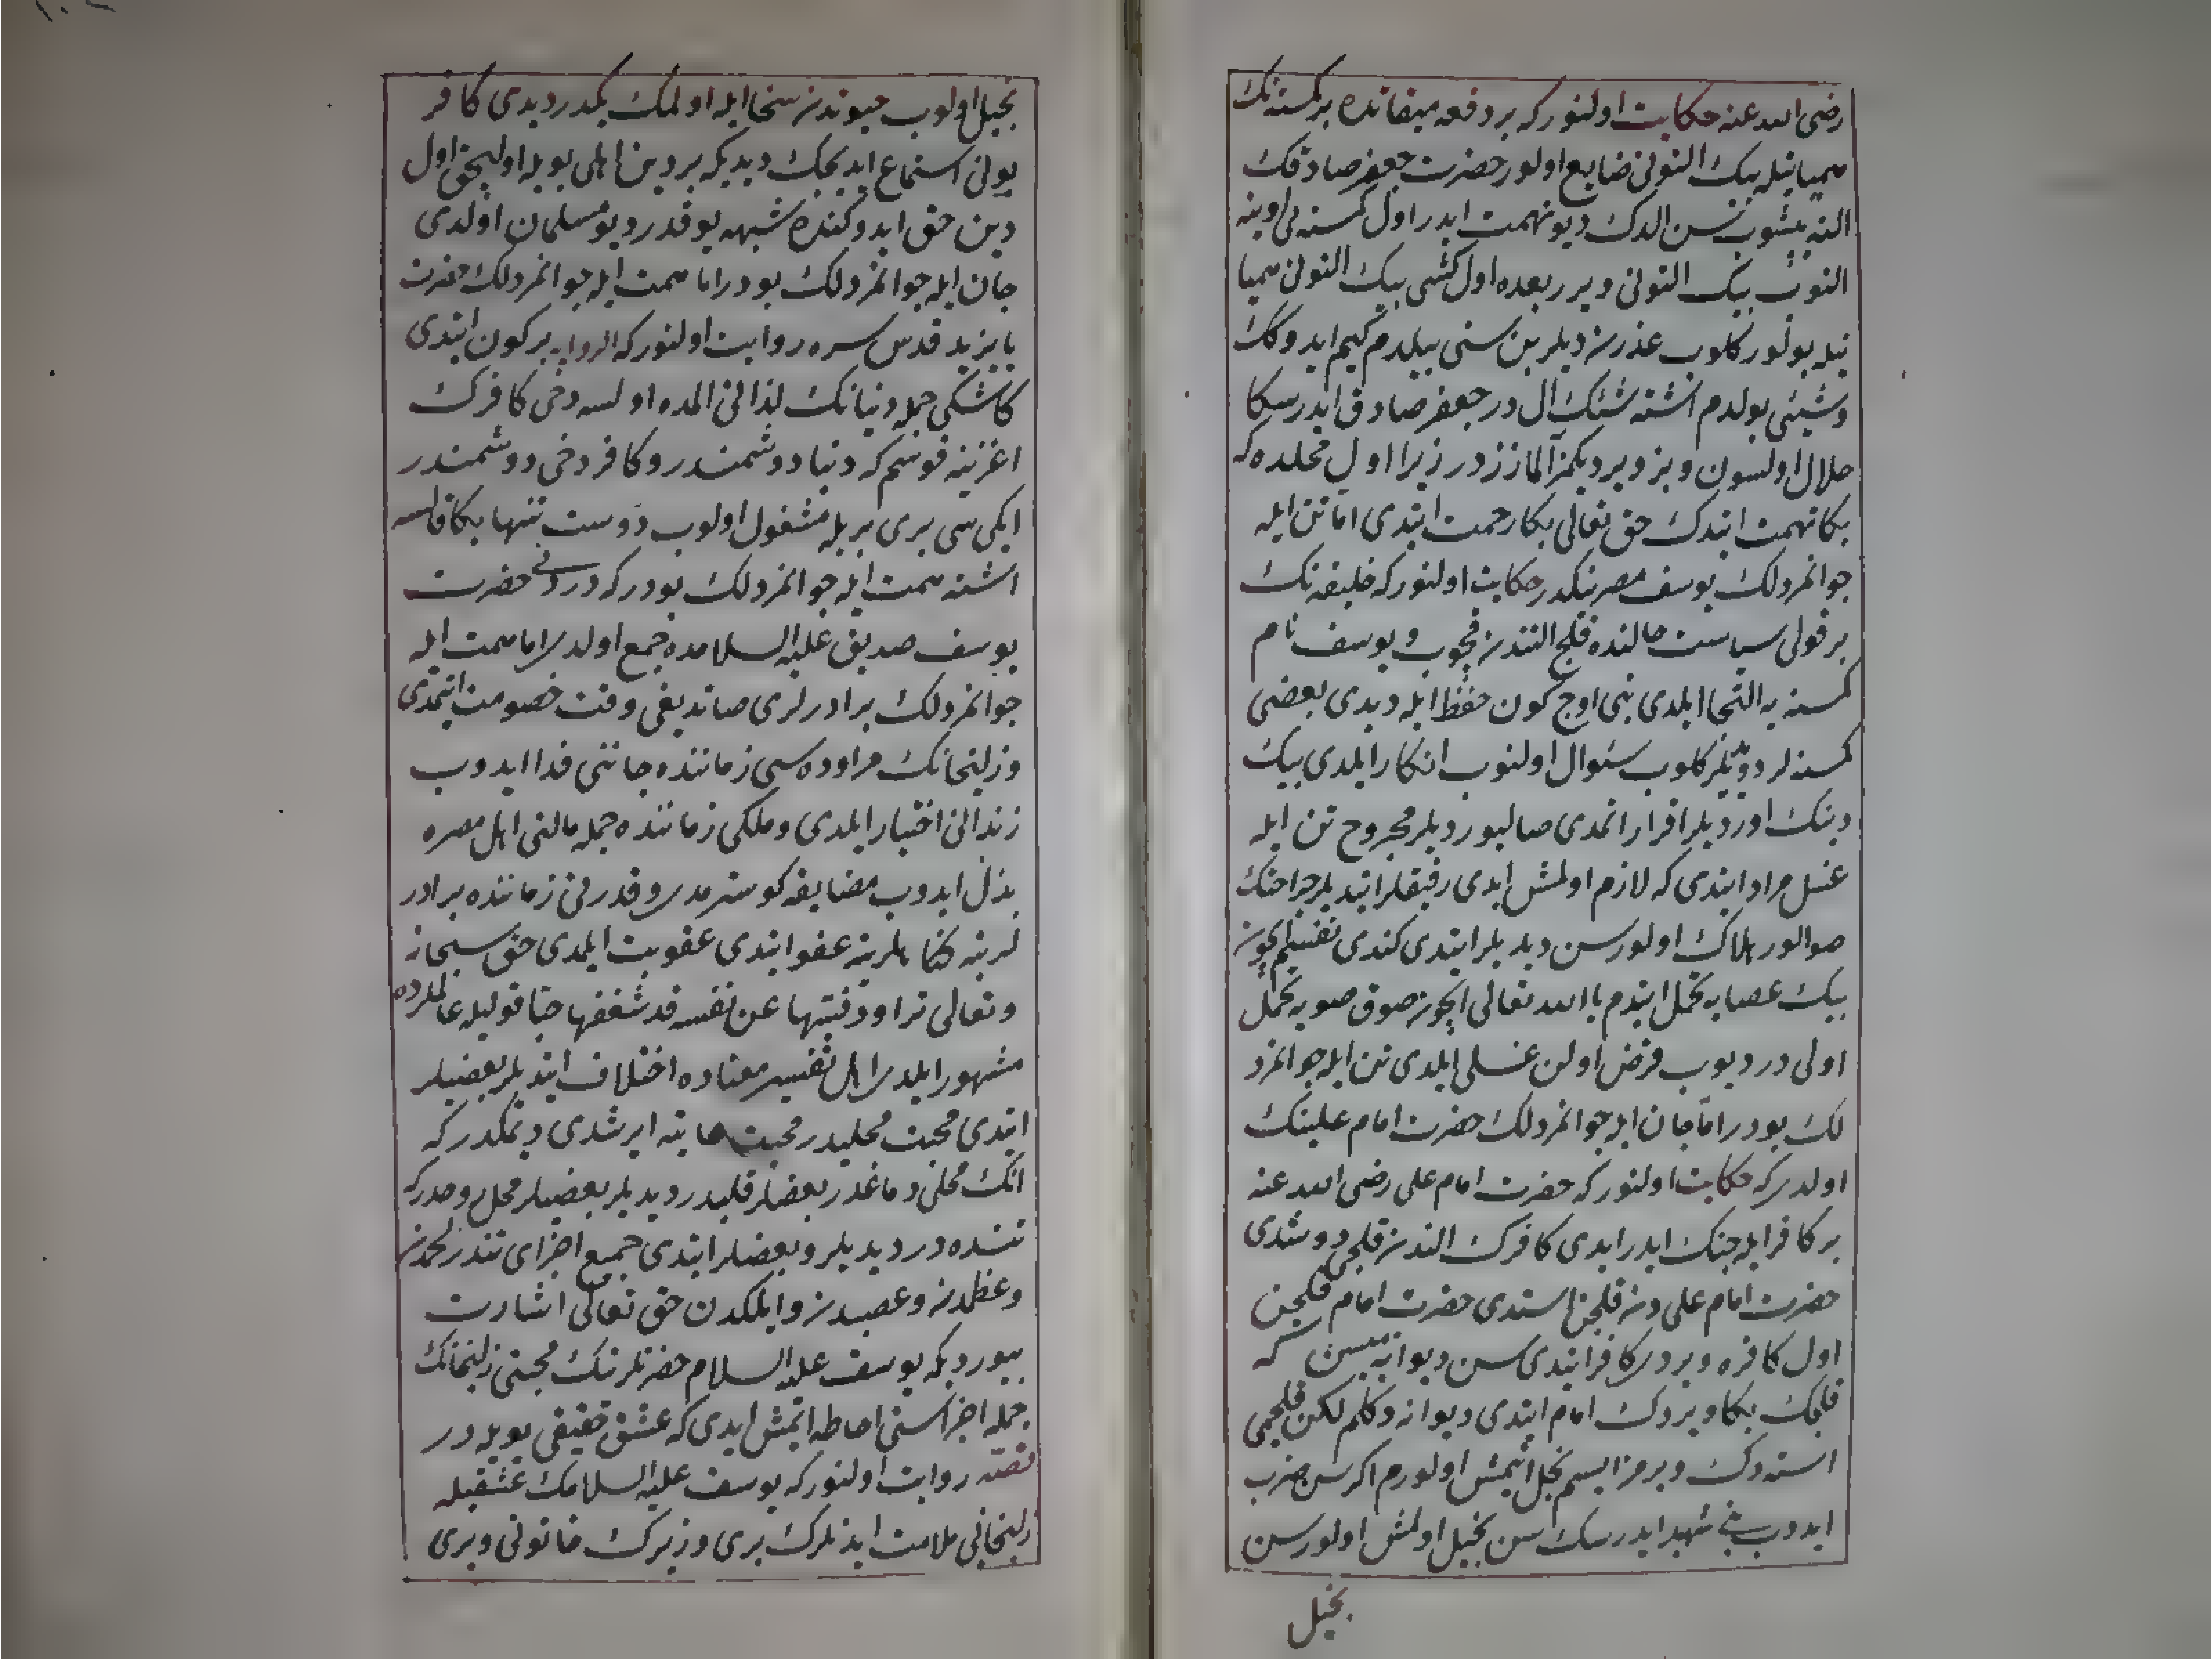 رضی الله عنه حکایت اولنور که بر دفعه میقاتده بر کسنه نک
همیانیله بیک التونی ضایع اولور حضرت جعفر صادقک
الته یپشوب سن الدک دیو تهمت ایدر اول کسنه نی اوینه
التوب بیک التونی ویرر بعده اول کشی بیک التونی همیا
نیله بولور کلوب عذر دیلر بن سنی بیلمدم کیم ایدوکک
وشیئی بولدم اشته شیئک ال در جعفر صادق ایدر سکا
حلال اولسون و بز ویردیکمز آلمازز در زیرا اول محلده که
بکا تهمت ایتدک حق تعالی بکا رحمت ایتدی اما تن ایله
جوانمردلک یوسف مصرینکدر حکایت اولنور که خلیفه نک
بر قولی سیاست حالنده قلج التندن قچوب یوسف نام
کمسنه یه التجا ایلدی بنی اوچ کون حفظ ایله دیدی بعضی
کمسنه لر کلوب سئوال اولنوب انکار ایلدی بیک
دینک اوردیلر اقرار اتمدی صالیوردیلر مجروح تن ایله
غسل مراد ایتدی که لازم اولمش ایدی رفیقلر ایتدیلر جراحتک
صو الور هلاک اولورسن دیدیلر ایتدی کندی نفسیم ایچون
بیک عصایه تحمل ایتدم یا الله تعالی ایچون صوق صویه تحمل
اولی در دیوب فرض اولن غسلی ایلدی تن ایله جوانمرد
لک بودر اما جان ایله جوانمردلک حضرت امام علینک
اولدر که حکایت اولنور که حضرت امام علی رضی الله عنه
بر کافر ایله جنک ایدر ایدی کافرک الندن قلجی دوشدی
حضرت امام علی دن قلجن استدی حضرت امام قلجن
اول کافره ویردی کافر ایتدی سن دیوانه میسن که
قلجک بکا ویردک امام ایتدی دیوانه دکلم لکن قلجمی
استدک ویرمز ایسم بخل ایتمش اولورم اکر سن ضرب
ایدوب بنی شهید ایدرسک سن بخیل اولمش اولورسن
بخیل
بخیل اولوب سخا ایله اولمک یکدر دیدی کافر
بونی استماع ایدیجک دیدیکه بر دین اهلی بویله اولیجق اول
دین حق ایدوکنده شبهه یوقدر دیو مسلمان اولدی
جان ایله جوانمردلک بودر اما همت ایله جوانمردلک حضرت
بایزید قدس سره روایت اولنور که بر کون ایتدی
کاشکی جمله دنیانک لذاتی المده اولسه دخی کافرک
اغزینه قوسم که دنیا دوشمندر و کافر دخی دوشمندر
ایکی سی بری بریله مشغول اولوب دوست تنها بکا قالسه
اشته همت ایله جوانمردلک بودر که حضرت
یوسف صدیق علیه السلامده جمع اولدی اما همت ایله
جوانمردلک برادرلری صاتدیغی وقت خصومت ایتمدی
و زلیخانک مراوده سی زماننده جاننی فدا ایدوب
زندانی اختیار ایلدی و ملکی زماننده جمله مالنی اهل مصره
بذل ایدوب مضایقه کوسترمدی و قدرتی زماننده برادر
لرینه کناهلرینه عفو ایتدی عقوبت ایلمدی حق سبحانه
وتعالی تراود فتیها عن نفسه قد شغفها حبا قولیله عالملرده
مشهور ایلدی اهل تفسیر معناده اختلاف ایتدیلر بعضیلر
ایتدی محبت محلیدر محبت ایرشدی دیمکدر که
انک محلی دماغدر بعضلر قلبیدر دیدیلر بعضیلر محل روحدر که
تنده در دیدیلر و بعضلر ایتدی جمیع اجزای تندر لحمدن
وعظمدن وعصبدن و ایلکدن حق تعالی اشارت
بیوردیکه یوسف علیه السلام حضرتلرینک محبتی زلیخانک
جمله اجزاسنی احاطه ایتمش ایدی که عشق حقیقی بویله در
قصه روایت اولنور که یوسف علیه السلامک عشقیله
زلیخانی ملامت ایدنلرک بری وزیرک خاتونی و بری